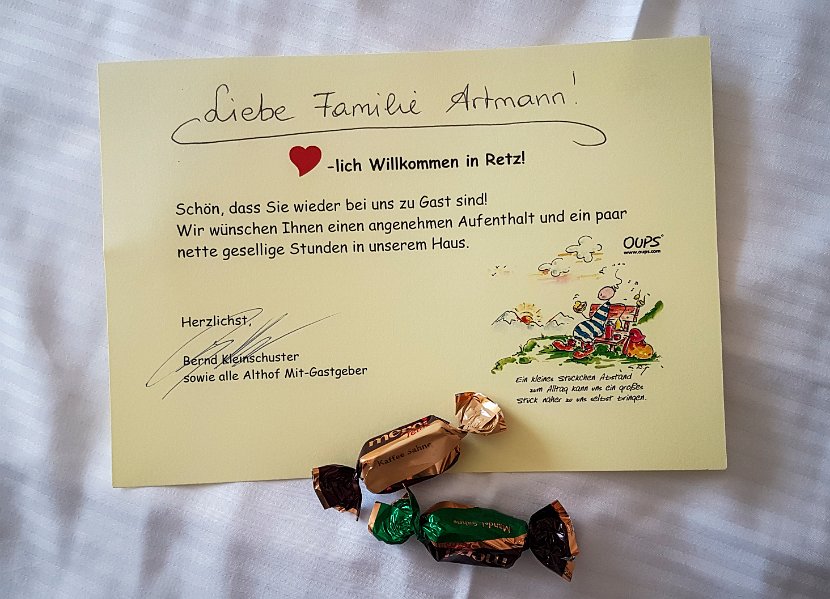 Liebe Familie Artmann!
-lich Willkommen in Retz!
Schön, dass Sie wieder bei uns zu Gast sind!
Wir wünschen Ihnen einen angenehmen Aufenthalt und ein paar
nette gesellige Stunden in unserem Haus.
OUPS®
www.oups.com
Herzlichst,
Bernd Kleinschuster
sowie alle Althof Mit-Gastgeber
Ein kleines Stückchen Abstand
zum Alltag kann uns ein großes
Stück näher zu uns selbst bringen.
Kaffee Sahne
Mandel Sahne